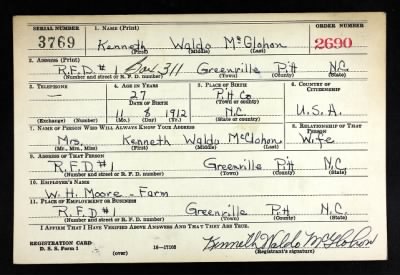 SERIAL NUMBER 1. NAME (Print) ORDER NUMBER
3769 Kenneth Waldo McGlohon 2690
(First) (Middle) (Last)
2. ADDRESS (Print)
R.F.D. #1 Box 311 Greenville Pitt N.C.
(Number and street or R. F. D. number) (Town) (County) (State)
3. TELEPHONE 4. AGE IN YEARS 5. PLACE OF BIRTH 6. COUNTRY OF CITIZENSHIP
— 27 Pitt Co
DATE OF BIRTH (Town or county)
11 8 1912 N.C. U.S.A.
(Exchange) (Number) (Mo.) (Day) (Yr.) (State or country)
7. NAME OF PERSON WHO WILL ALWAYS KNOW YOUR ADDRESS 8. RELATIONSHIP OF THAT PERSON
Mrs. Kenneth Waldo McGlohon Wife
(Mr., Mrs., Miss) (First) (Middle) (Last)
9. ADDRESS OF THAT PERSON
R.F.D. #1 Greenville Pitt N.C.
(Number and street or R. F. D. number) (Town) (County) (State)
10. EMPLOYER'S NAME
W. H. Moore - Farm
11. PLACE OF EMPLOYMENT OR BUSINESS
R.F.D. #1 Greenville Pitt N.C.
(Number and street or R. F. D. number) (Town) (County) (State)
I AFFIRM THAT I HAVE VERIFIED ABOVE ANSWERS AND THAT THEY ARE TRUE.
REGISTRATION CARD
D. S. S. Form 1 (over) 16—17105 Kenneth Waldo McGlohon
(Registrant's signature)